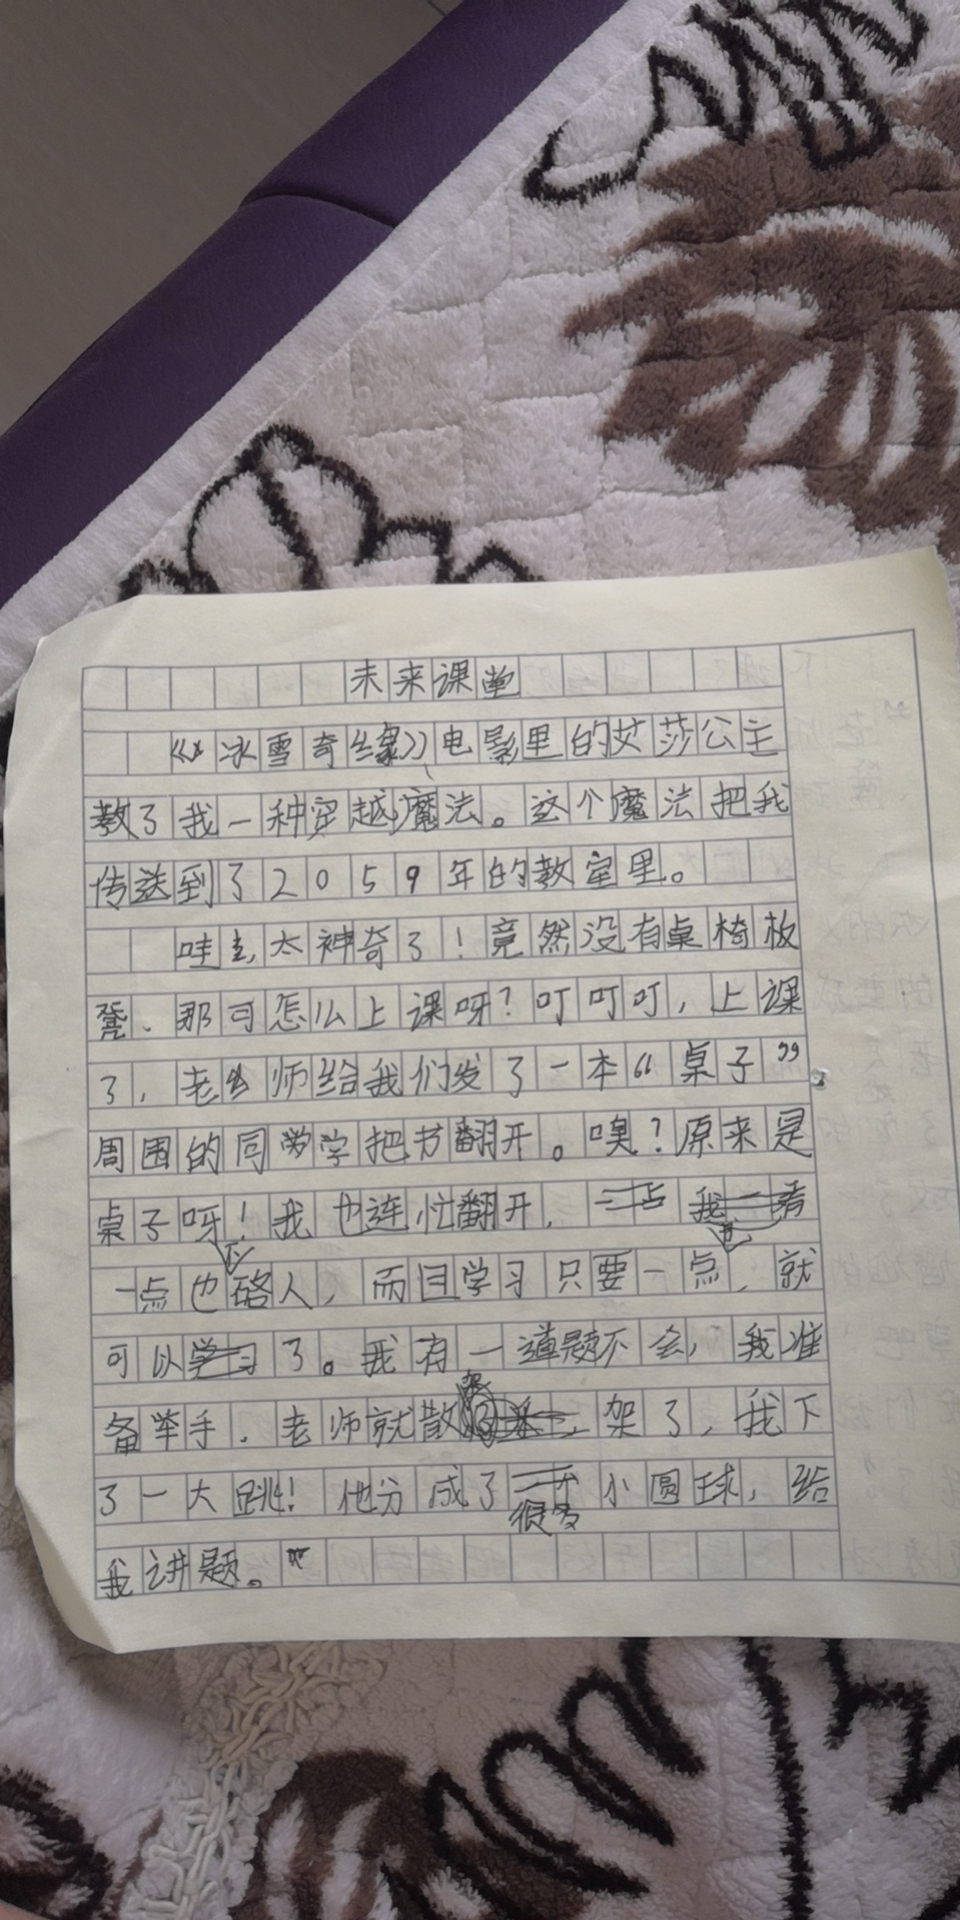 未来课堂
《冰雪奇缘》电影里的艾莎公主
教了我一种穿越魔法。这个魔法把我
传送到了2059年的教室里。
哇！太神奇了！竟然没有桌椅板
凳，那可怎么上课呀？叮叮叮，上课
了，老师给我们发了一本“桌子”。
周围的同学把书翻开。嗅？原来是
桌子呀！我也连忙翻开，
一点也不硌人，而且学习只要一点，就
可以了。我有一道题不会，我准
备举手，老师就散架了，我下
了一大跳！他分成了很多小圆球，给
我讲题。